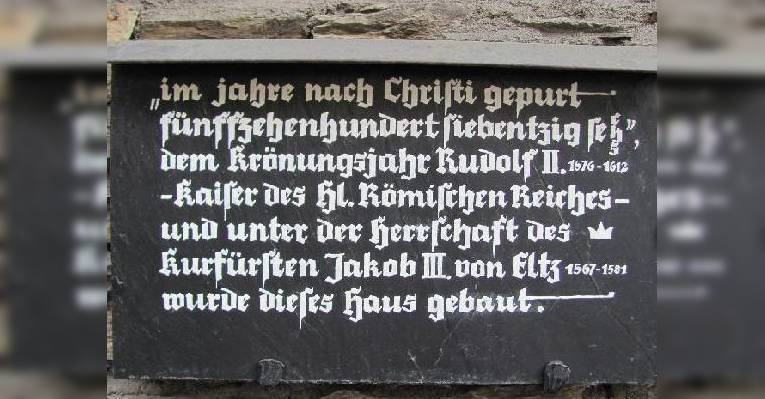 „im jahre nach Christi gepurt
fünffzehenhundert siebentzig sehs",
dem Krönungsjahr Rudolf II. 1576-1612
-Kaiser des Hl. Römischen Reiches-
und unter der Herrschaft des
Kurfürsten Jakob III. von Eltz 1567-1581
wurde dieses Haus gebaut.